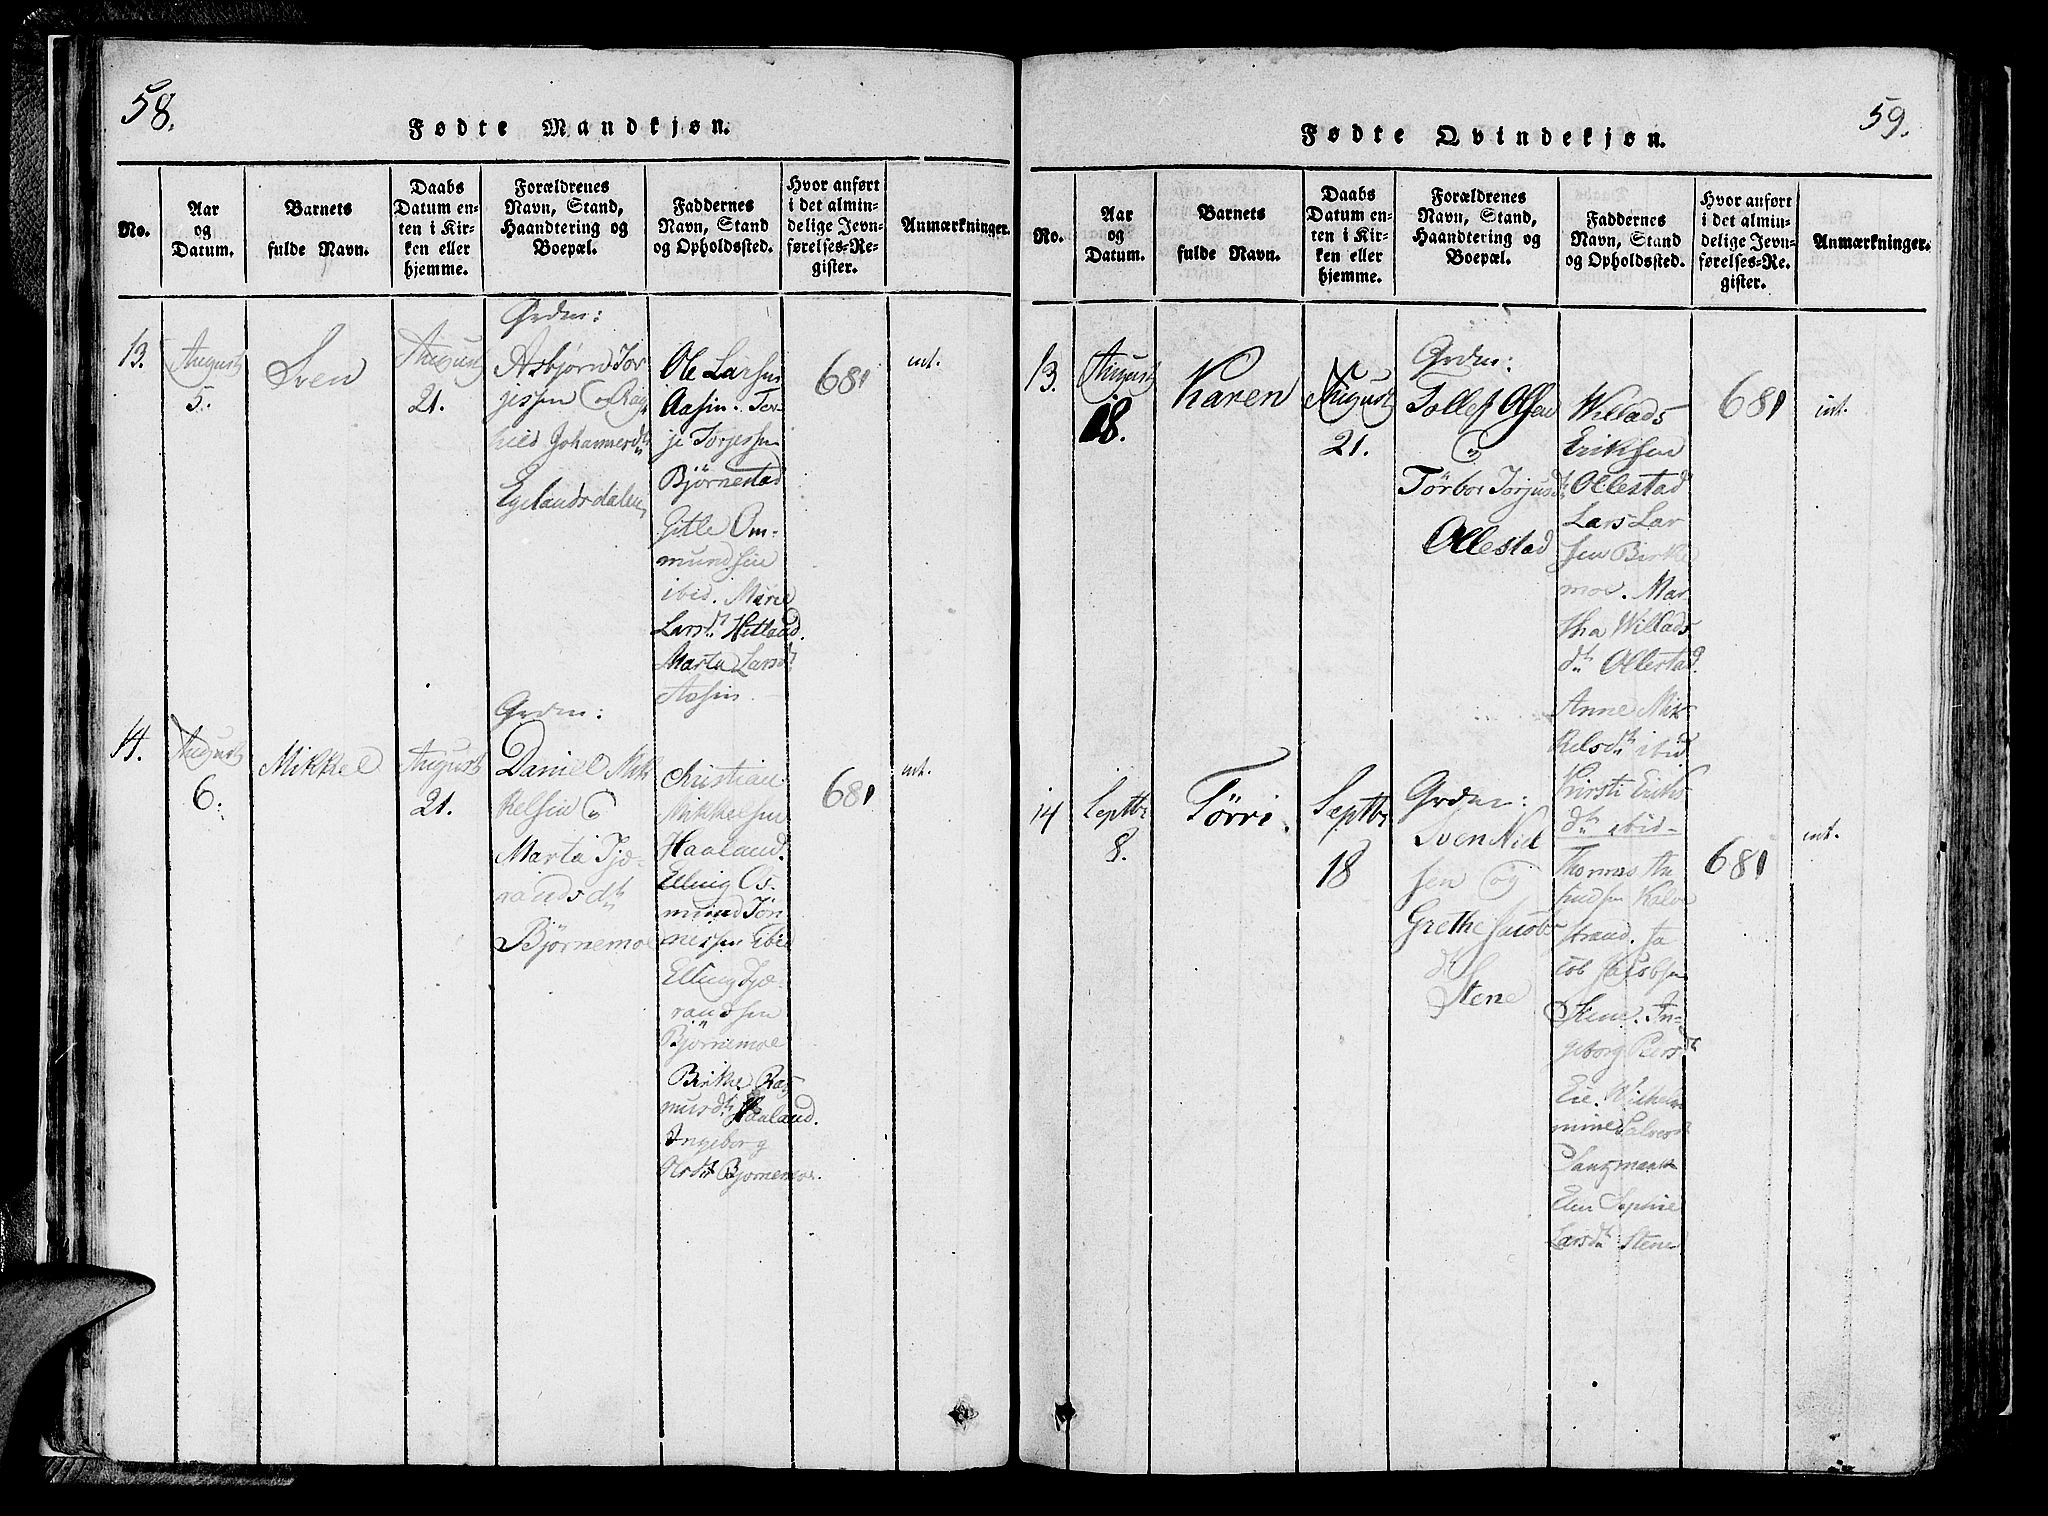 58.
Fødte Mandkjøn.
No.
Aar
og
Datum.
Barnets
fulde Navn.
Daabs
Datum en-
ten i Kir-
ken eller
hjemme.
Forældrenes
Navn, Stand,
Haandtering og
Boepæl.
Faddernes
Navn, Stand
og Opholdssted.
Hvor anført
i det almin-
delige Jevn-
førelses-Re-
gister.
Anmærkninger.
13.
August
5.
Sven
August
21.
Grdm:
Asbjørn Tor
jessen og Rag
hild Johannesdtr
Egelandsdalen
Ole Larsen
Aasin. Ter-
je Torjessen
Bjørnestad
Gitle Om-
mundsen
ibid. Marie
Larsdtr Hetland.
Marta Larsdtr
Aasin
681
int.
14.
August
6.
Mikkel
August
21.
Grdm:
Daniel Mik
kelsen og
Marta Tjæ-
randsdtr
Bjørnemoe
Christian
Mikkelsen
Haaland.
Elling Os-
mund Tön
nessen ibid
Elling Tjæ-
randsen
Bjørnemoe
Birthe Ras
musdtr Haaland.
Ingeborg
Olsdtr Bjørnemoe.
681
int.
59.
Fødte Qvindekjøn.
No.
Aar
og
Datum.
Barnets
fulde Navn.
Daabs
Datum en-
ten i Kir-
ken eller
hjemme.
Forældrenes
Navn, Stand,
Haandtering og
Boepæl.
Faddernes
Navn, Stand
og Opholdssted.
Hvor anført
i det almin-
delige Jevn-
førelses-Re-
gister.
Anmærkninger.
13.
August
18.
Karen
August
21.
Grdm:
Tollef Olsen
og
Törbor Torjusdtr
Ollestad
Willads
Eriksen
Ollestad
Lars Lar
sen Birke
moe. Mar
tha Willads
dtr Ollestad.
Anne Mik-
kelsdtr ibid
Kirsti Eriks
dtr ibid
681
int.
14
Septbr
8.
Törri.
Septbr
18
Grdm:
Sven Niel
sen og
Grethe Jacobs
dtr
Stene
Thomas An
undsen Kalve
strand. Ja
cob Jacobsen
Stene. In-
geborg Peersdtr
Eie. Wilhel
mine Salvesdtr
Elen Sophie
Larsdtr Stene
681
int.